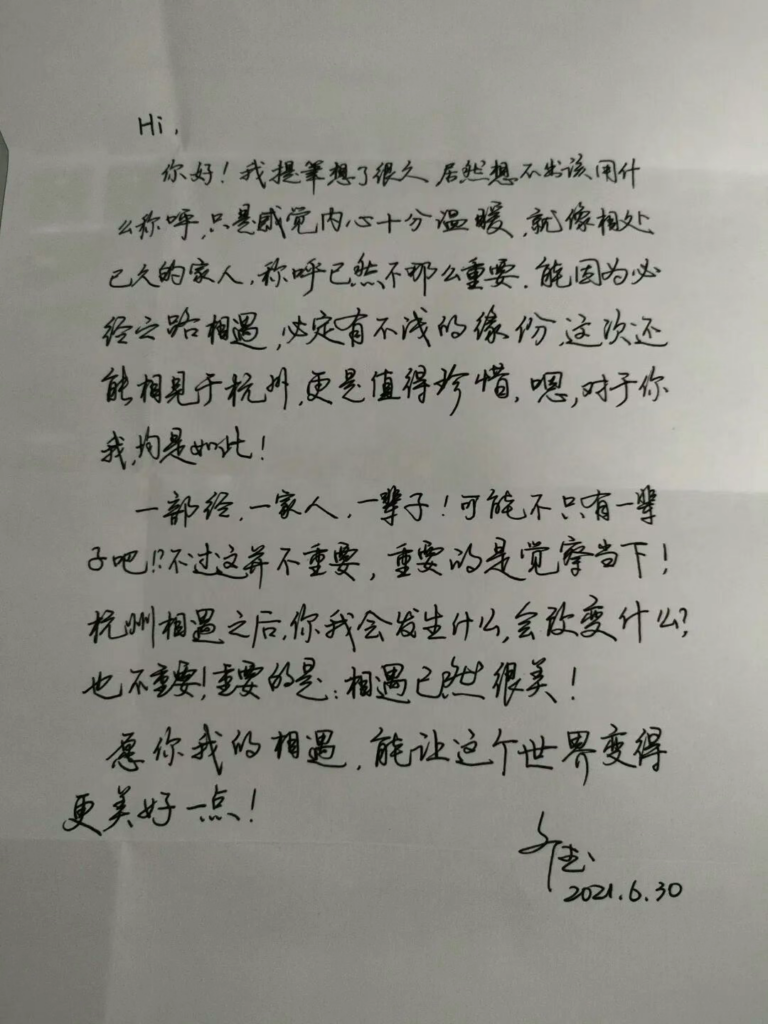 Hi,
你好!我提笔想了很久居然想不出该用什
么称呼,只是感觉内心十分温暖,就像相处
已久的家人,称呼已然不那么重要.能因为必
经之路相遇,必定有不浅的缘份,这次还
能相见于杭州,更是值得珍惜,嗯,对于你
我,均是如此!
一部经,一家人,一辈子!可能不只有一辈
子吧!?不过这并不重要,重要的是觉察当下!
杭州相遇之后,你我会发生什么,会改变什么?
也不重要!重要的是:相遇已然很美!
愿你我的相遇,能让这个世界变得
更美好一点!
2021.6.30